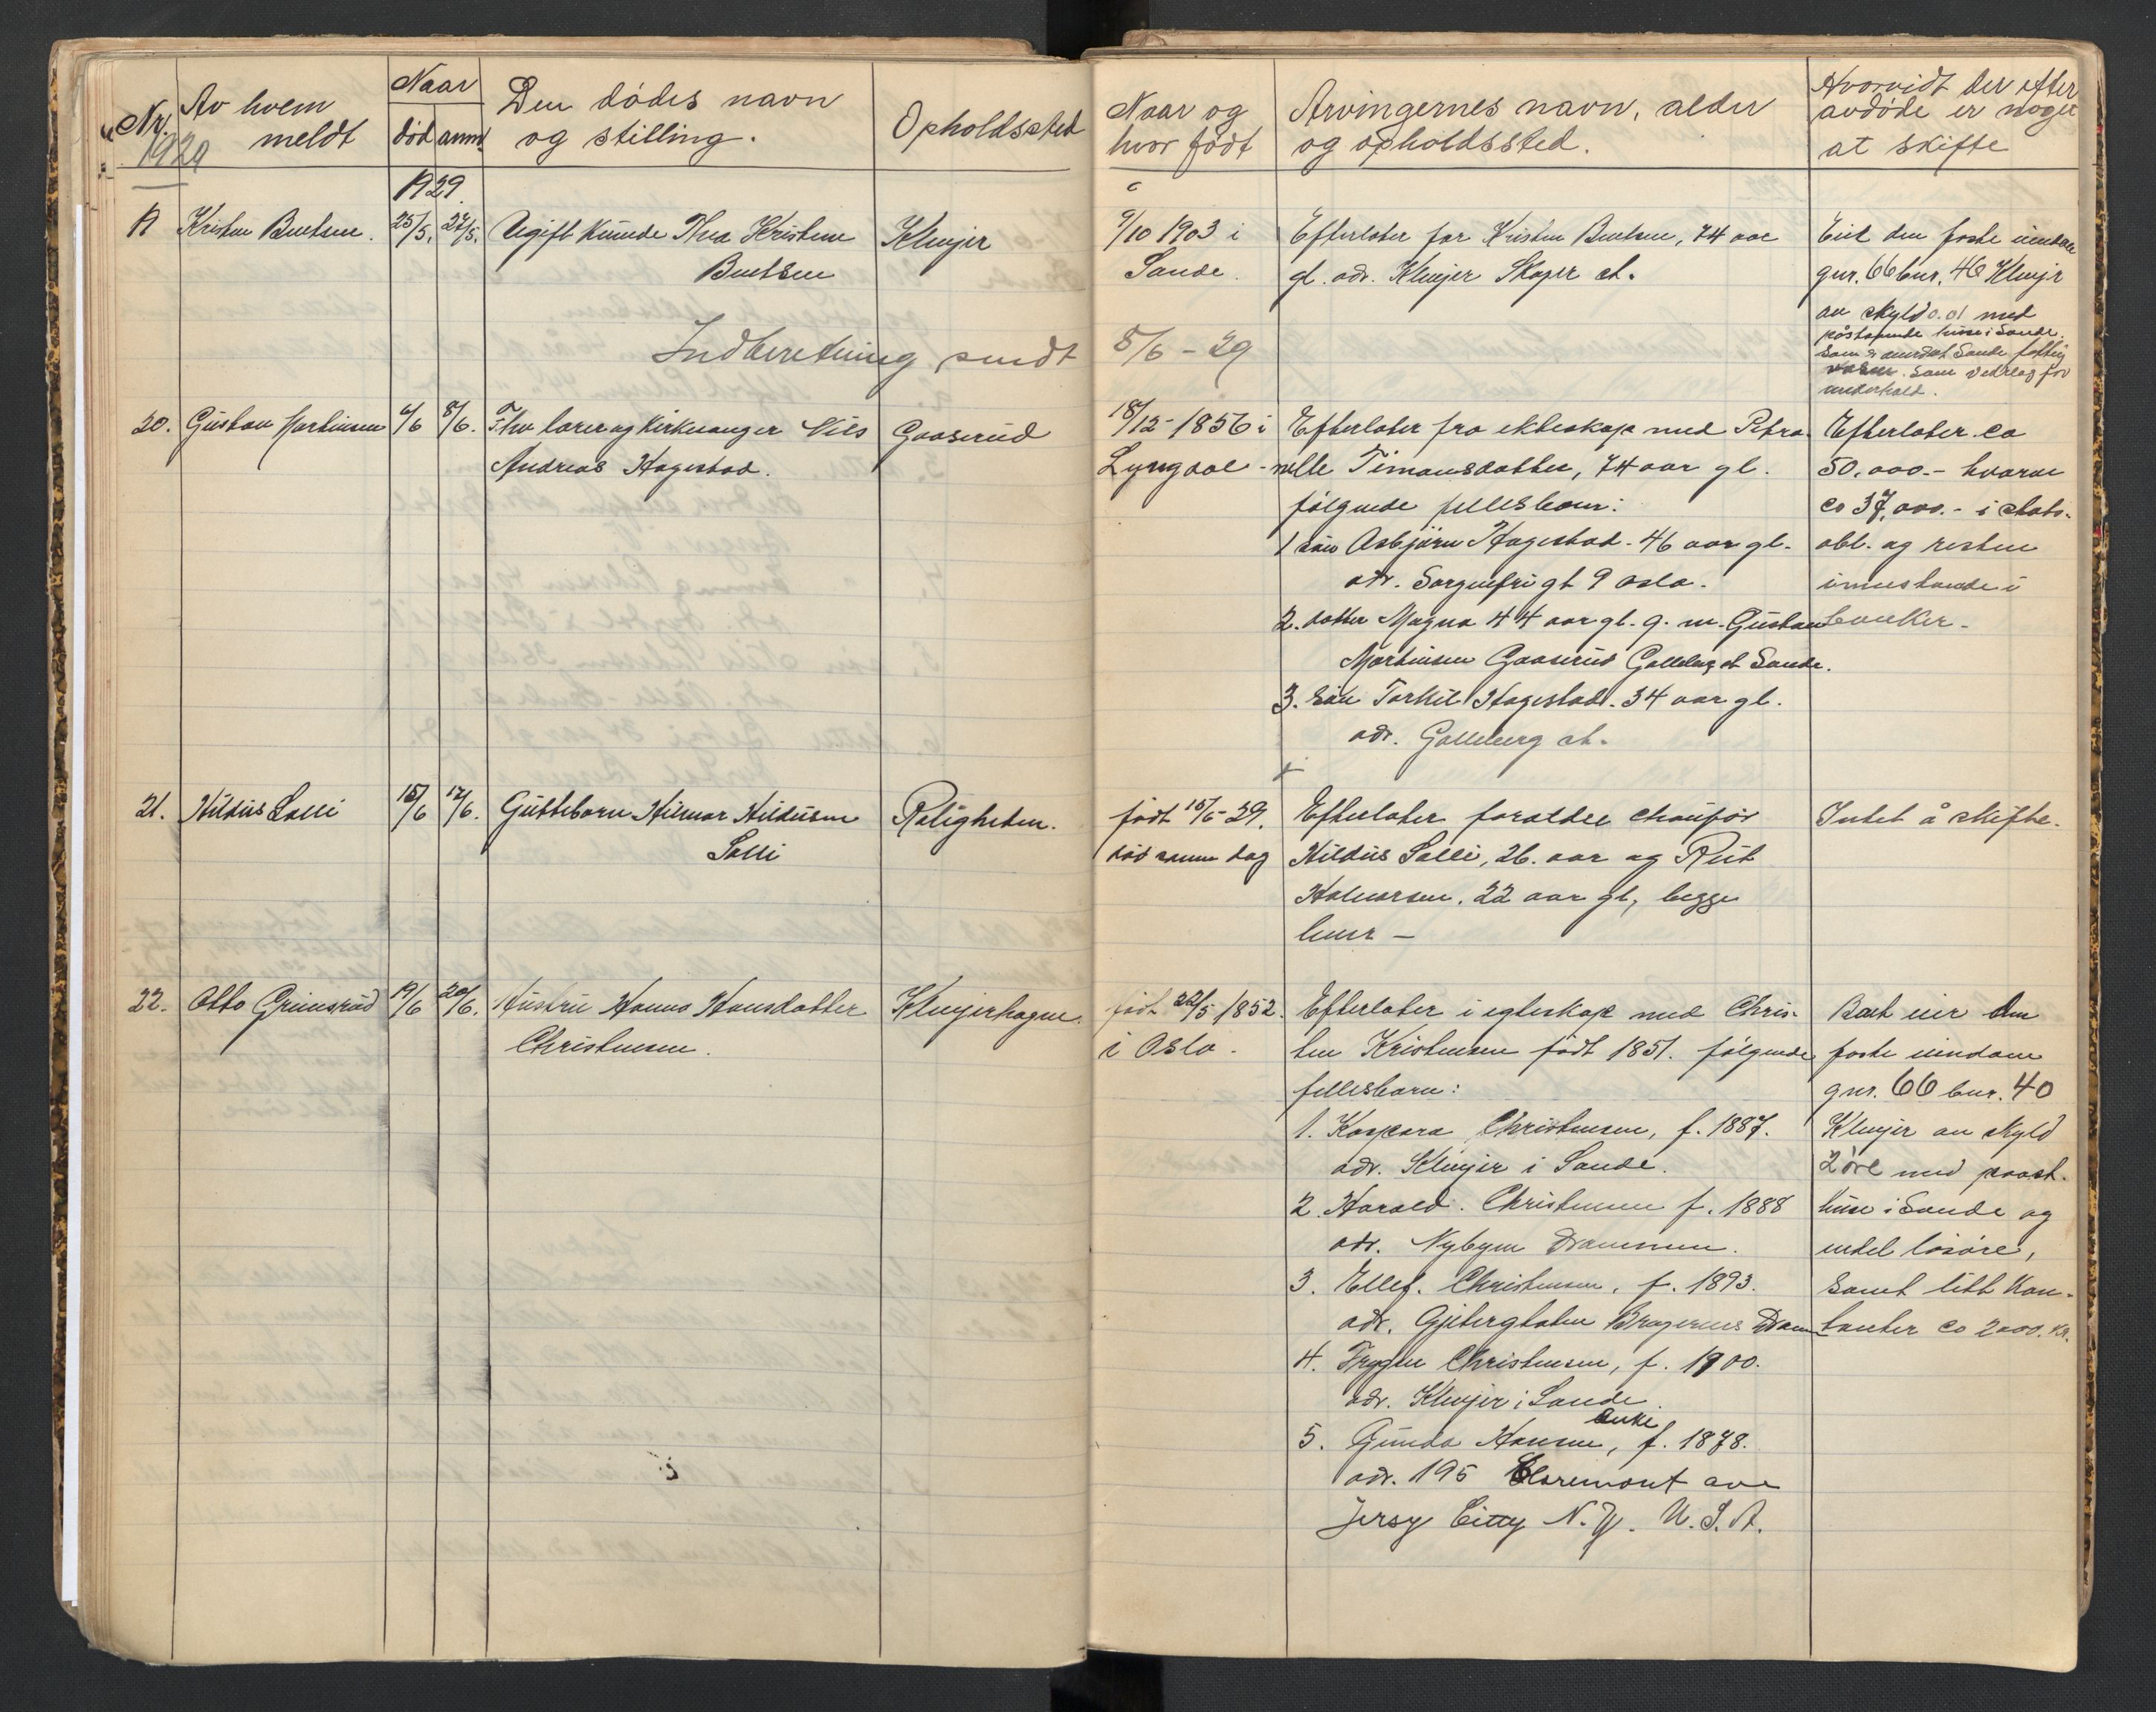 Nr. Av hvem meldt Naar død anm. Den dødes navn og stilling. Opholdssted
1929
Naar og hvor født Arvingernes navn, alder og opholdssted. Hvorvidt der efter avdøde er noget at skifte
1929.
Kristen Bentsen. 25/5. 27/5. Ugift kvinde Thea Kristine Klevjer
Bentsen
9/10 1903 i Efterlater far Kristen Bentsen, 74 aar Eiet den faste eiendom
Sande. gl. adr. Klevjer Skoger st. gnr. 66 bnr. 46 Klevjer
av skyld 0.01 med
påstaaende huse i Sande.
Sande
som vederlag for
underhold.
Indberetning sendt 5/6 - 29
20. Gustav Martinsen 4/6 8/6. Fhv lærer og kirkesanger Nils Gaaserud
Andreas Hagestad.
18/12 - 1856 i Efterlater fra ekteskap med Petro- Efterlater ca
Lyngdal - nelle Timansdatter, 74 aar gl. 50.000.- hvorav
følgende fellesbarn: ca 37,000.- i stats-
1 søn Asbjørn Hagestad. 46 aar gl. obl. og resten
adr. Sorgenfrigt 9 Oslo. innestaaende i
2. datter Magna 44 aar gl. g. m. Gustav banker.
Martinsen Gaaserud Galleberg st Sande.
3. søn Torkil Hagestad. 34 aar gl.
adr. Galleberg st.
21. Hildus Solli 15/6 17/6. Guttebarn Hilmar Hildusen Roligheten.
Solli
født 15/6 - 29. Efterlater foreldre chaufør Intet å skifte.
død samme dag Hildus Solli, 26. aar og Rut
Halvorsen. 22 aar gl, begge
her -
22. Otto Grimsrud 19/6 20/6. Hustru Hanna Hansdatter Klevjerhagen.
Christensen.
født 22/5 1852. Efterlater i egteskap med Chris- Boet eier den
i Oslo. ten Kristensen født 1851. følgende faste eiendom
fellesbarn: gnr. 66 bnr. 40
1. Kaspara Christensen, f. 1887. Klevjer av skyld
adr. Klevjer i Sande. 2 øre med paast.
2. Harald. Christensen f. 1888 huse i Sande og
adr. Nybyen Drammen. endel løsøre,
3. Ellef. Christensen, f. 1893. samt litt kon-
adr. Bragernes Dram tanter ca 2000. kr.
4. Trygve Christensen, f. 1900.
adr. Klevjer i Sande.
enke
5. Gunda Hansen, f. 1878.
adr. 195 Claremont ave
Jersy Citty N.Y. U.S.A.